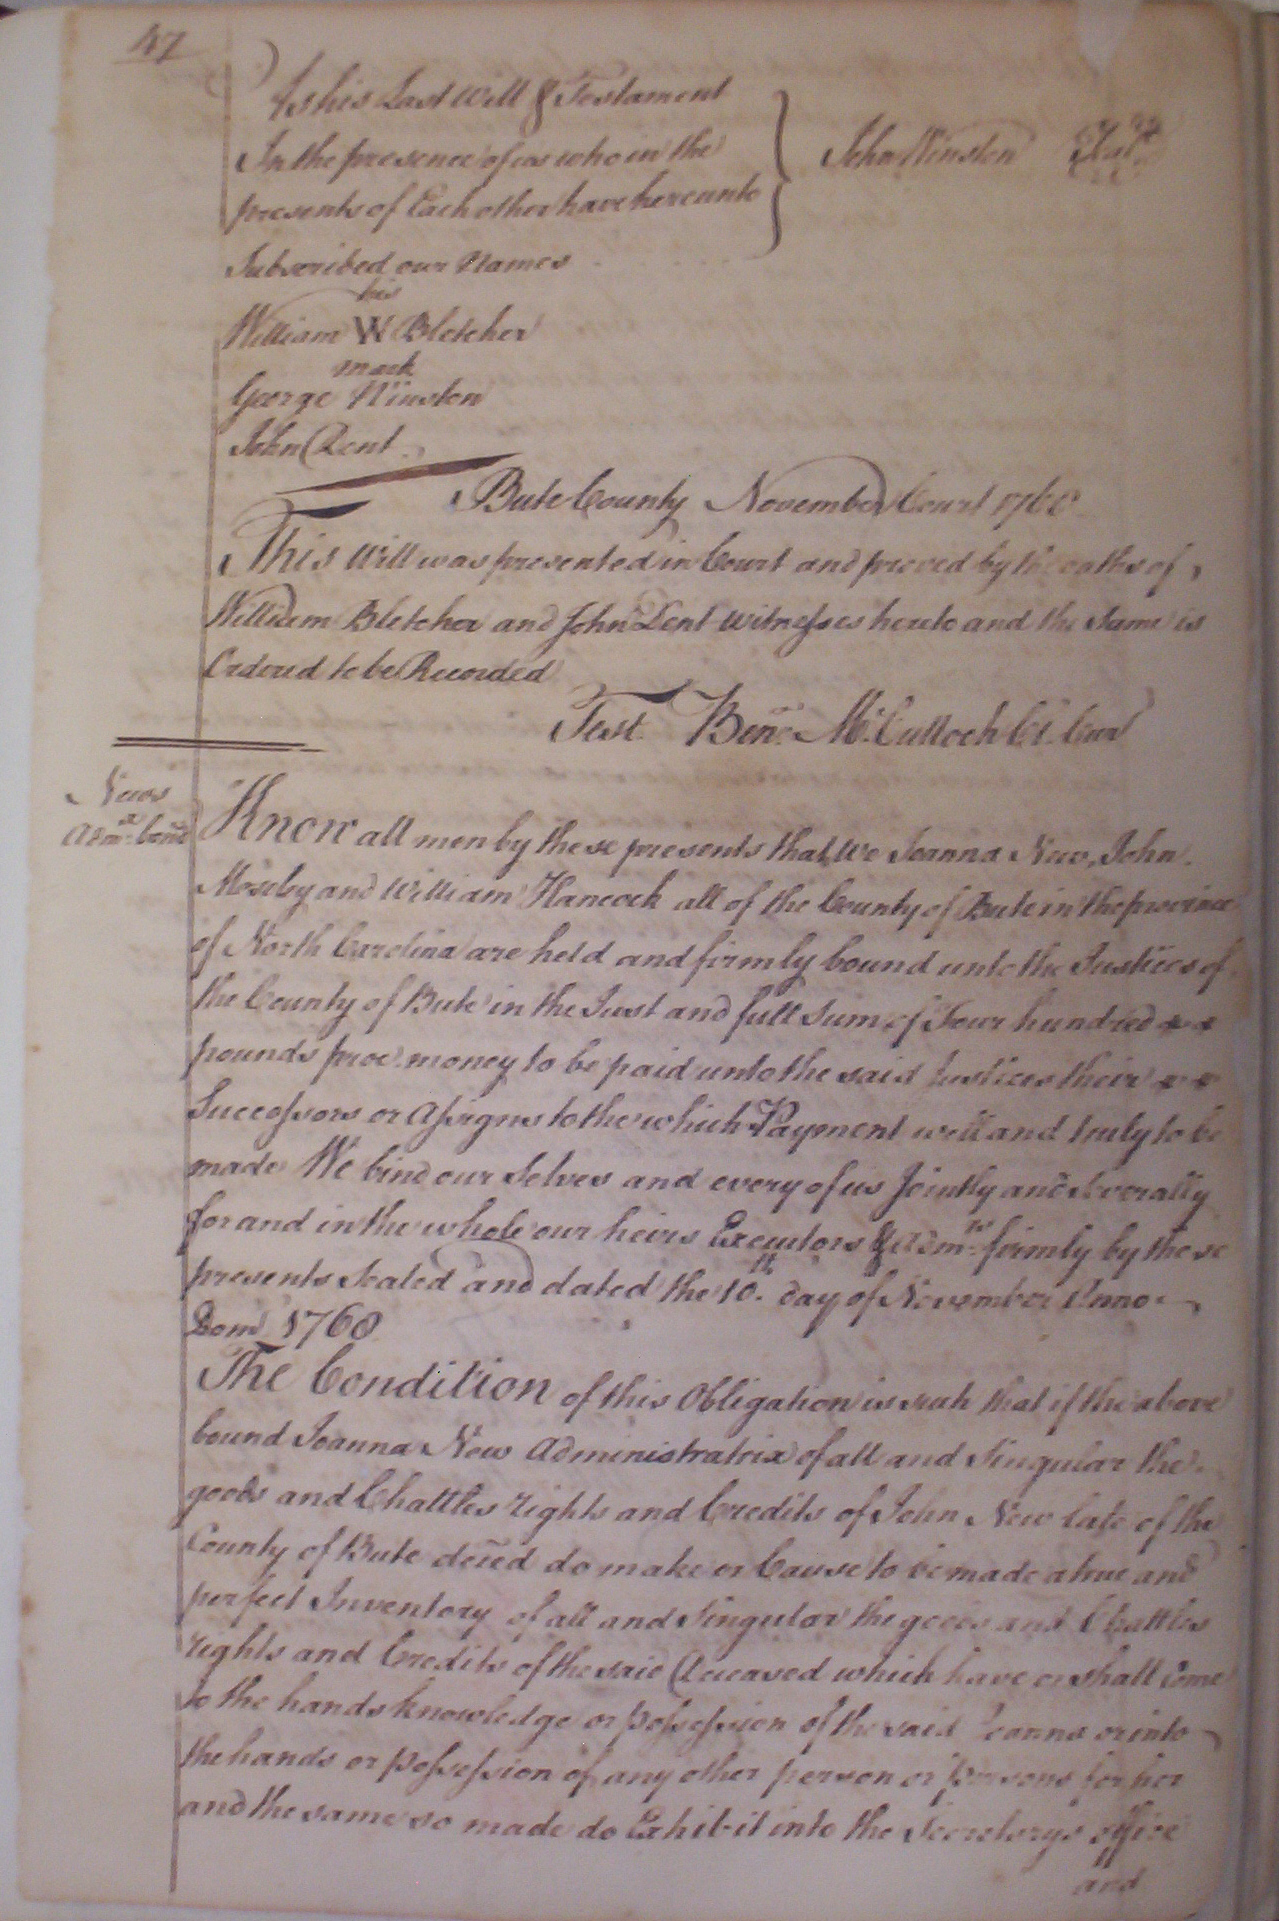 47
As his Last Will & Testament
In the presence of us who in the
presents of Each other have hereunto
Subscribed our Names
John Winston Seal
his
William W Bletcher
mark
George Winston
John Dent
Bute County November Court 1768
This Will was presented in Court and proved by the oaths of
William Bletcher and John Dent Witnesses hereto and the Same is
Ordered to be Recorded
Test. Ben. McCulloch Cl. Cur
News
Admx. bond
Know all men by these presents that We Joanna New, John
Moseby and William Hancock all of the County of Bute in the province
of North Carolina are held and firmly bound unto the Justices of
the County of Bute in the Just and full Sum of Four hundred
pounds proc. money to be paid unto the said Justices their
Successors or Assigns to the which Payment well and truly to be
made We bind our Selves and every of us Jointly and Severally
for and in the whole our heirs Executors & Admrs. firmly by these
presents Sealed and dated the 10th. day of November Anno
Dom 1768
The Condition of this Obligation is such that if the above
bound Joanna New Administratrix of all and Singular the
goods and Chattles rights and Credits of John New late of the
County of Bute deced do make or Cause to be made a true and
perfect Inventory of all and Singular the goods and Chattles
rights and Credits of the said Deceased which have or shall come
to the hands knowledge or possession of the said Joanna or into
the hands or possession of any other person or persons for her
and the same so made do Exhibit into the Secretarys office
and